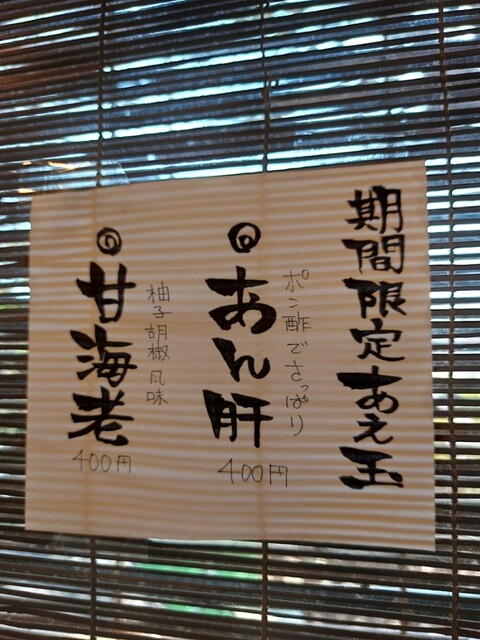 期間限定あえ玉
ポン酢でさっぱり
あん肝
400円
柚子胡椒風味
甘海老
400円